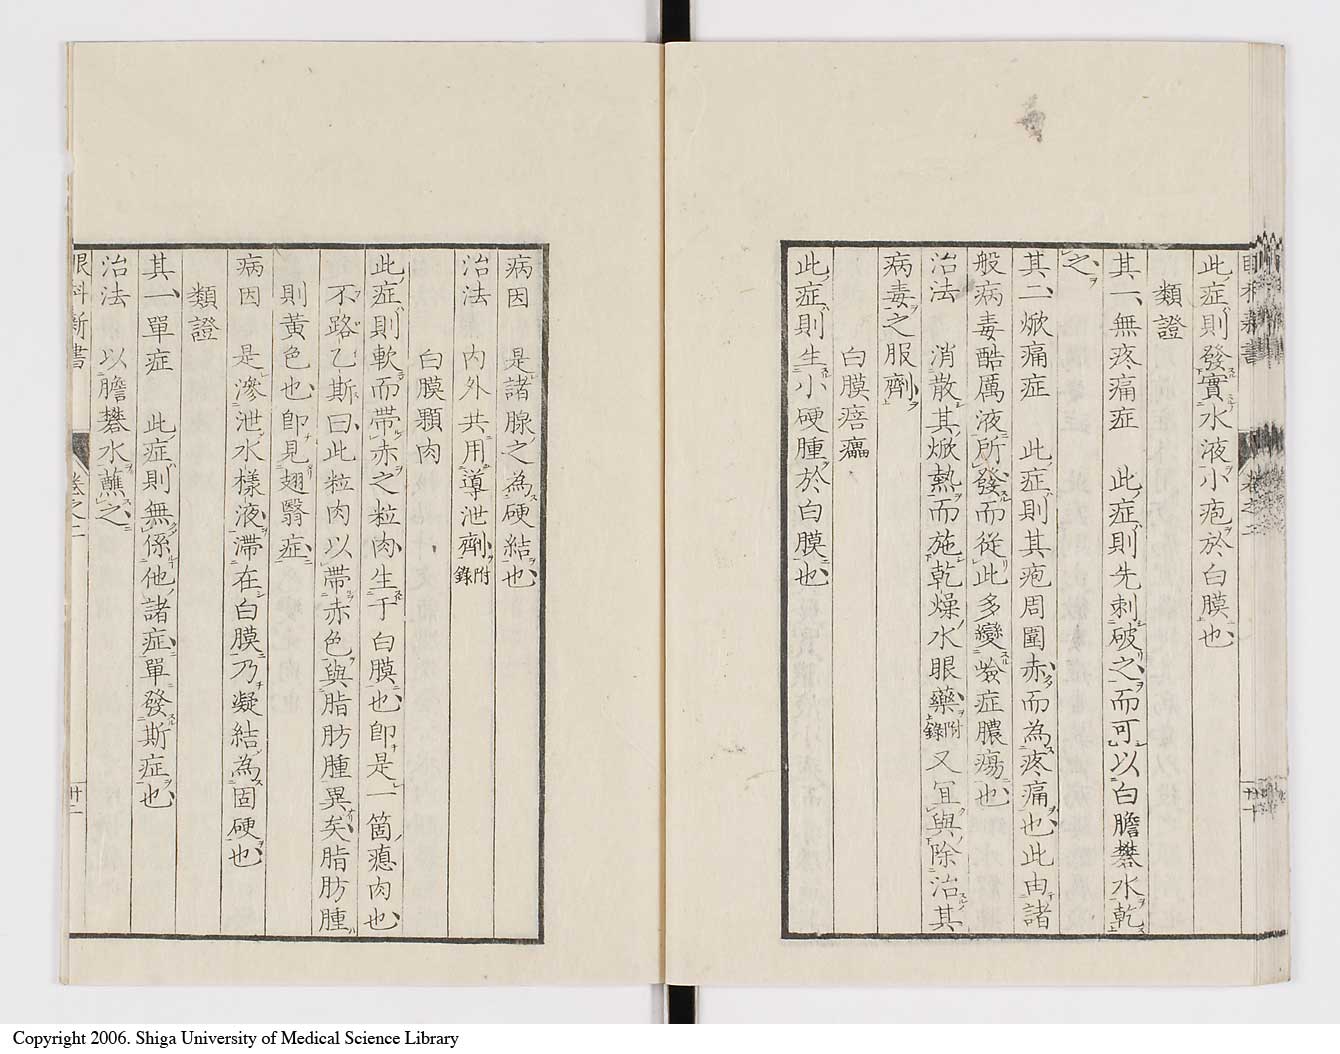 此症則發實水液小疱於白膜也
類證
其一、無疼痛症　此症則先刺破之而可以白膽礬水乾
之
其二、焮痛症　此症則其疱周圍赤而為疼痛也此由諸
般病毒酷厲液所發而從此多變險症膿瘍也
治法　消散其焮熱而施乾燥水眼藥附錄又宜與除治其
病毒之服劑
白膜痦𤴡
此症則生小硬腫於白膜也
病因　是諸腺之為硬結也
治法　內外共用導泄劑附錄
白膜顆肉
此症則軟而帶赤之粒肉生于白膜也卽是一箇瘜肉也
不路乙斯曰此粒肉以帶赤色與脂肪腫異矣脂肪腫
則黃色也卽見翅翳症
病因　是滲泄水樣液滯在白膜乃凝結為固硬也
類證
其一單症　此症則無係他諸症單發斯症也
治法　以膽礬水蘸之
眼科新書　卷之二　廿二
Copyright 2006. Shiga University of Medical Science Library